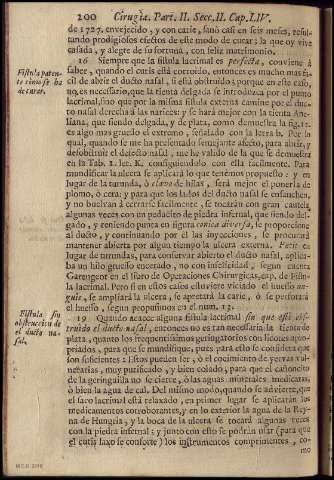 200 Cirugia. Part. II. Secc. II. Cap. LIV.
de 1727. envejecido, y con carie, sanò casi en seis meses, resul-
tando prodigiosos efectos de este modo de curar; la que oy vive
casada, y alegre de su fortuna, con feliz matrimonio.
Fistula paten-
te como se ha
de curar.
16 Siempre que la fistula lacrimal es perfecta, conviene à
saber, quando el cutis està corroido, entonces es mucho mas fa-
cil de abrir el ducto nasal, si està obstruido; porque en este caso,
no es necesario, que la tienta delgada se introduzca por el punto
lacrimal, sino que por la misma fistula externa camine por el duc-
to nasal derecha à las narices: y se harà mejor con la tienta Ane-
liana, que siendo delgada, y de plata, como demuestra la fig. 12.
es algo mas gruesso el extremo, señalado con la letra b. Por la
qual, quando se me ha presentado semejante afecto, para abrir, y
desobstruir el ducto nasal, me he valido de la que se demuestra
en la Tab. 1. let. K. consiguiendolo con ella facilmente. Para
mundificar la ulcera se aplicarà lo que tenemos propuesto: y en
lugar de la turunda, ò clavo de hilas, serà mejor el ponerla de
plomo, ò cera: y para que los lados del ducto nasal se ensanchen,
y no buelvan à cerrarse facilmente, se tocaràn con gran cautela
algunas veces con un pedacito de piedra infernal, que siendo del-
gado, y teniendo punta en figura conica diversa, se proporcione
al ducto, y continuando por el las inyecciones, se procurarà
mantener abierta por algun tiempo la ulcera externa. Petit en
lugar de turundas, para conservar abierto el ducto nasal, aplica-
ba un hilo gruesso encerado, no con infelicidad, segun enseña
Garengeot en el libro de Operaciones Chirurgicas, cap. de Fistu-
la lacrimal. Pero si en estos casos estuviere viciado el huesso un-
guis, se ampliarà la ulcera, se apretarà la carie, ò se perforarà
el huesso, segun propusimos en el num. 13.
Fistula sin
obstruccion de
el ducto na-
sal.
19 Quando nazca alguna fistula lacrimal sin que estè obs-
truido el ducto nasal, entonces no es tan necessaria la tienta de
plata, quanto los frequentissimos geringatorios con licores apro-
priados, para que se mundifique, pues para esto se considera que
son suficientes: estos pueden ser, ò el cocimiento de yervas vul-
nerarias, muy purificado, y bien colado, para que el cañoncito
de la geringuilla no se cierre, ò las aguas minerales medicatas,
ò bien la agua de cal. Del mismo modo, quando se advierte, que
el saco lacrimal està relaxado, en primer lugar se aplicaràn los
medicamentos corroborantes, y en lo exterior la agua de la Rey-
na de Hungria, y la boca de la ulcera se tocarà algunas veces
con la piedra infernal; y junto con esto se podràn usar (para que
el cutis laxo se conforte) los instrumentos comprimentes, co-
mo